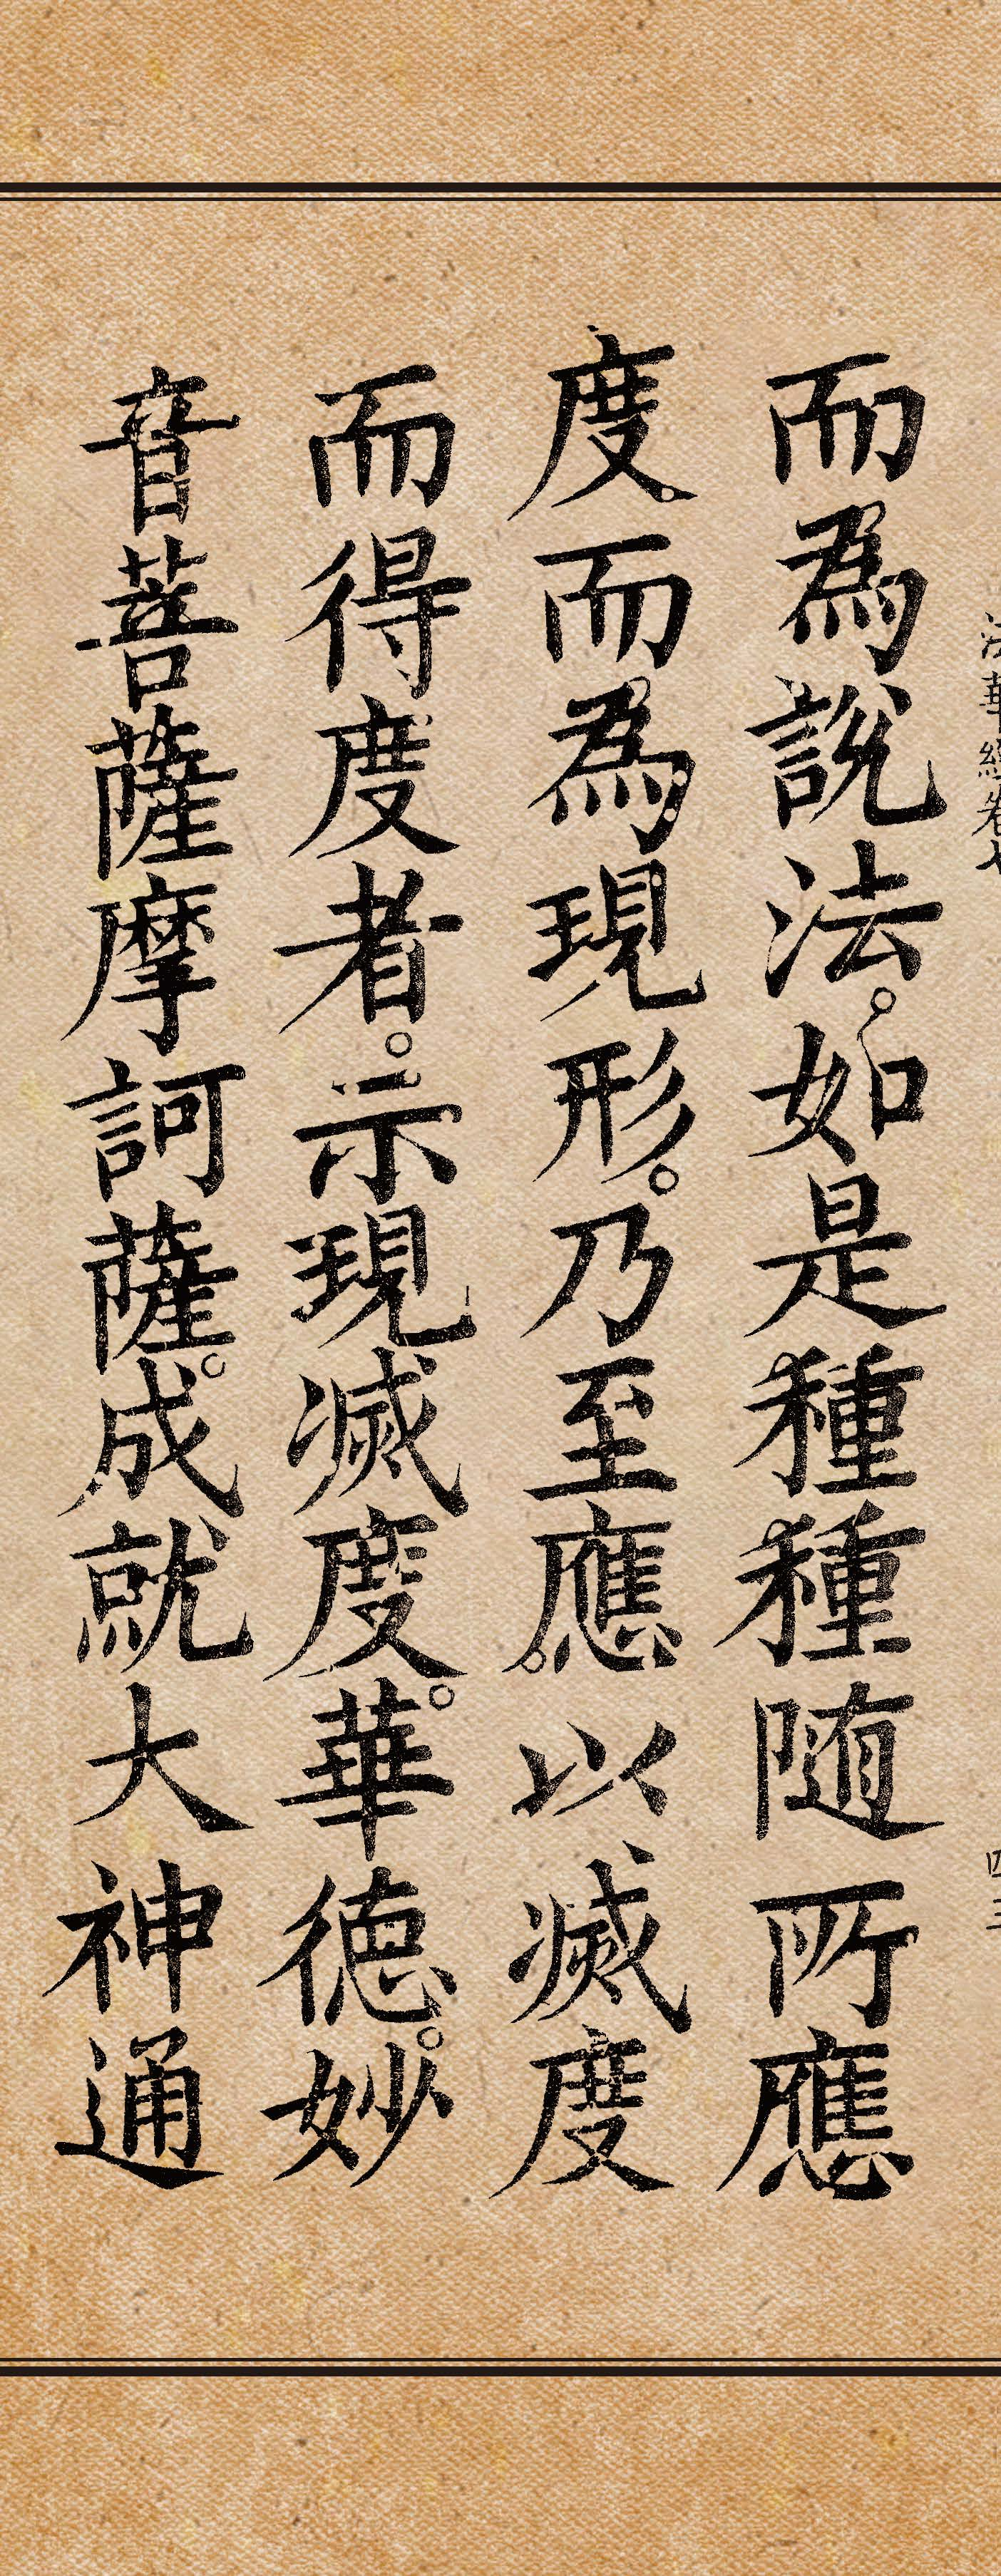 法華經卷七
四三
而為說法。如是種種隨所應
度。而為現形。乃至應以滅度
而得度者。示現滅度。華德。妙
音菩薩摩訶薩。成就大神通